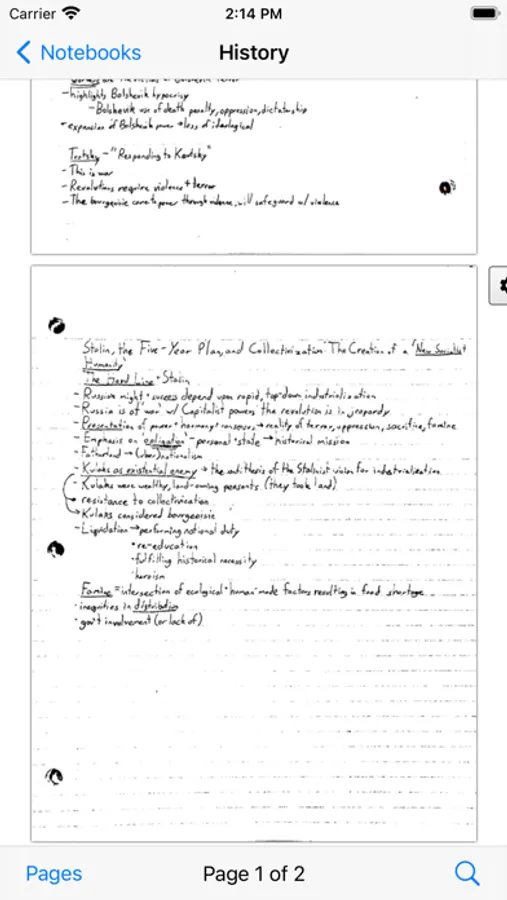 Carrier 2:14 PM
Notebooks History
Workers are the victims of Bolshevik terror
-highlights Bolshevik hypocrisy
-Bolshevik use of death penalty, oppression, dictatorship
-expansion of Bolshevik power → loss of ideological
Trotsky - "Responding to Kautsky"
-This is war
-Revolutions require violence + terror
-The bourgeoisie came to power through violence, will safeguard w/ violence
Stalin, the Five-Year Plan, and Collectivization: The Creation of a "New Socialist
Humanity"
The Hard Line · Stalin
-Russian might + success depend upon rapid, top-down industrialization
-Russia is at "war" w/ Capitalist powers, the revolution is in jeopardy
-Presentation of power + harmony + consensus → reality of terror, oppression, sacrifice, famine
-Emphasis on "obligation" - personal + state → historical mission
-Fatherland → (uber)nationalism
-Kulaks as existential enemy → the antithesis of the Stalinist vision for industrialization
-Kulaks were wealthy, land-owning peasants (they took land)
→ resistance to collectivization
→Kulaks considered bourgeoisie
-Liquidation → performing national duty
·re-education
·fulfilling historical necessity
·heroism
Famine = intersection of ecological + human-made factors resulting in food shortage
·inequities in distribution
·gov't involvement (or lack of)
Pages Page 1 of 2